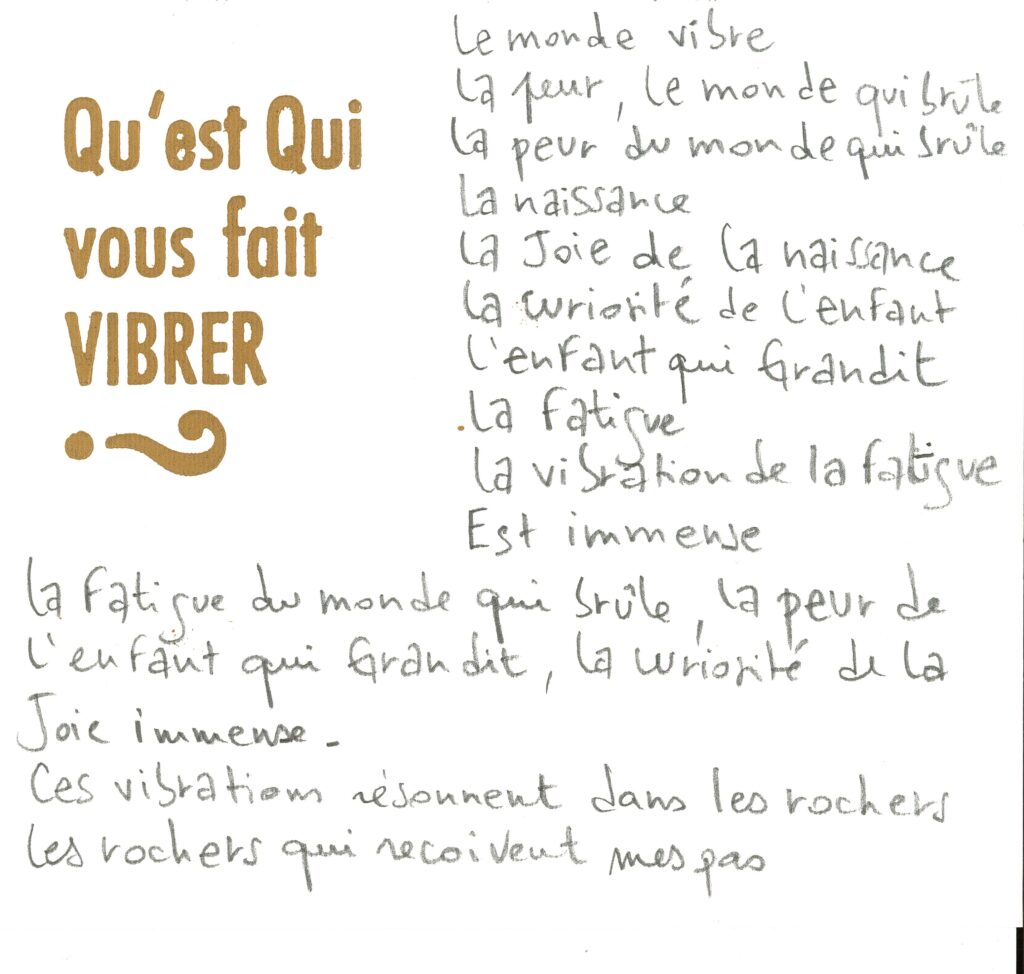 Qu'est Qui
vous fait
VIBRER
?
Le monde vibre
La peur, le monde qui brûle
La peur du monde qui brûle
La naissance
La Joie de la naissance
La curiosité de l'enfant
L'enfant qui Grandit
La fatigue
La vibration de la fatigue
Est immense
La fatigue du monde qui brûle, la peur de
l'enfant qui Grandit, la curiosité de la
Joie immense.
Ces vibrations résonnent dans les rochers
Les rochers qui recoivent mes pas